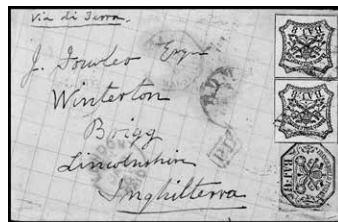 Via di Terra.
J. Fowler Esqre
Winterton
Brigg
Lincolnshire
Inghilterra
PD
BAJ. 8
BAJ. 8